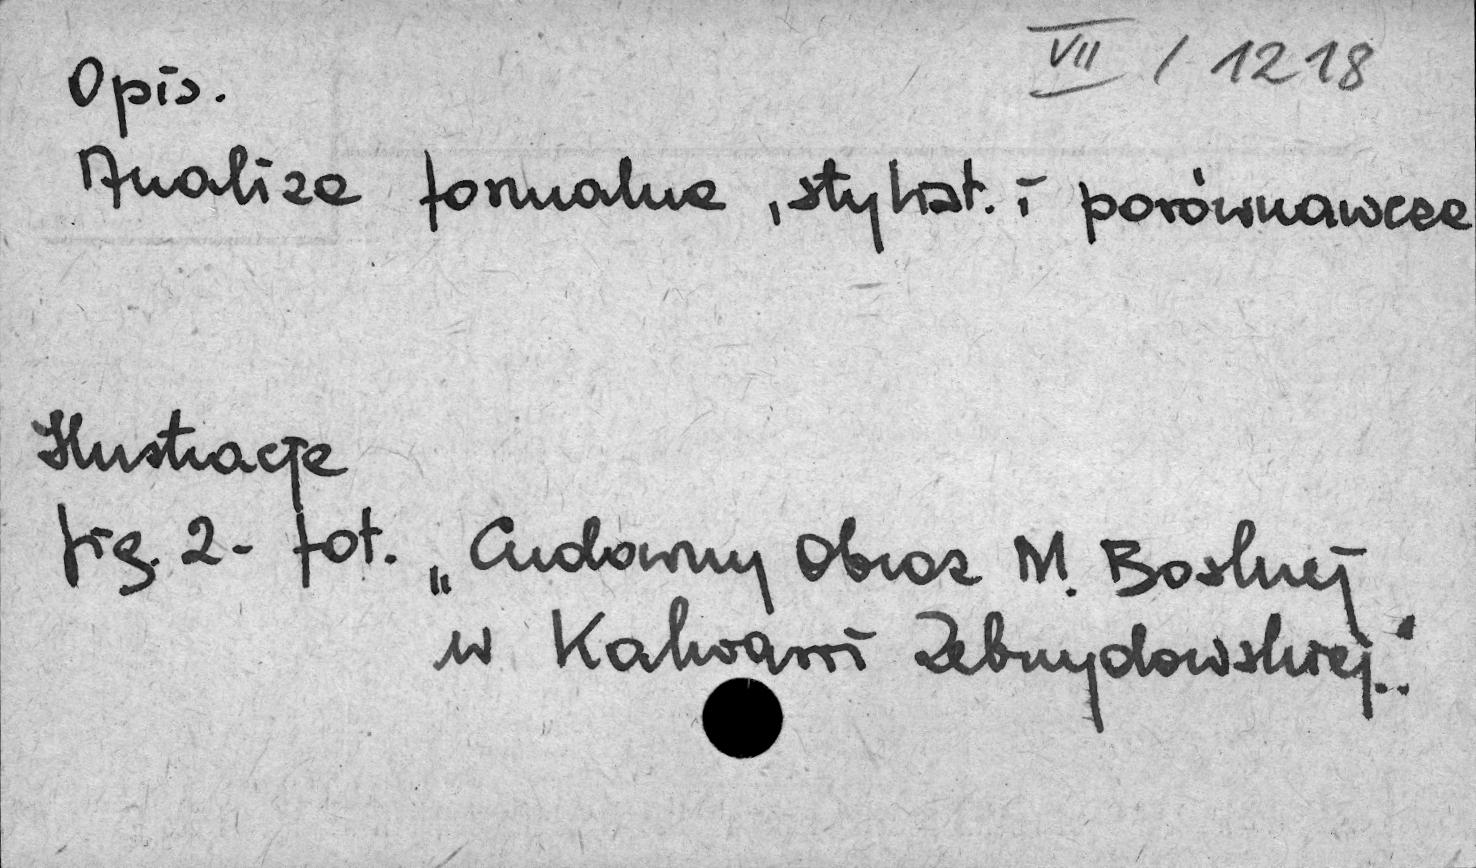 VII / 1218
Opis.
Analiza formalna, stylist. i porównawcza
Ilustracje
fig. 2 - fot. „Cudowny Obraz M. Boskiej
w Kalwarii Zebrzydowskiej.."